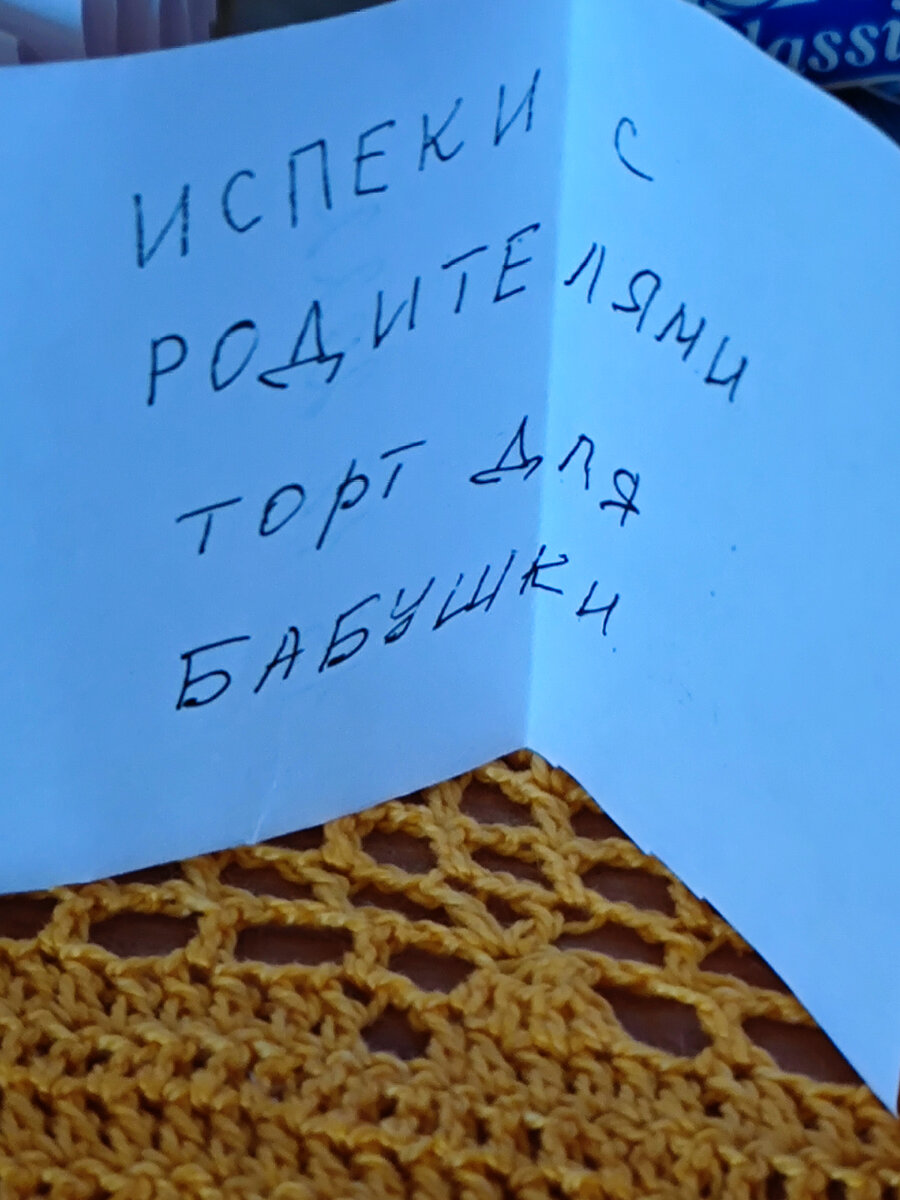 lassi
ИСПЕКИ С
РОДИТЕЛЯМИ
ТОРТ ДЛЯ
БАБУШКИ